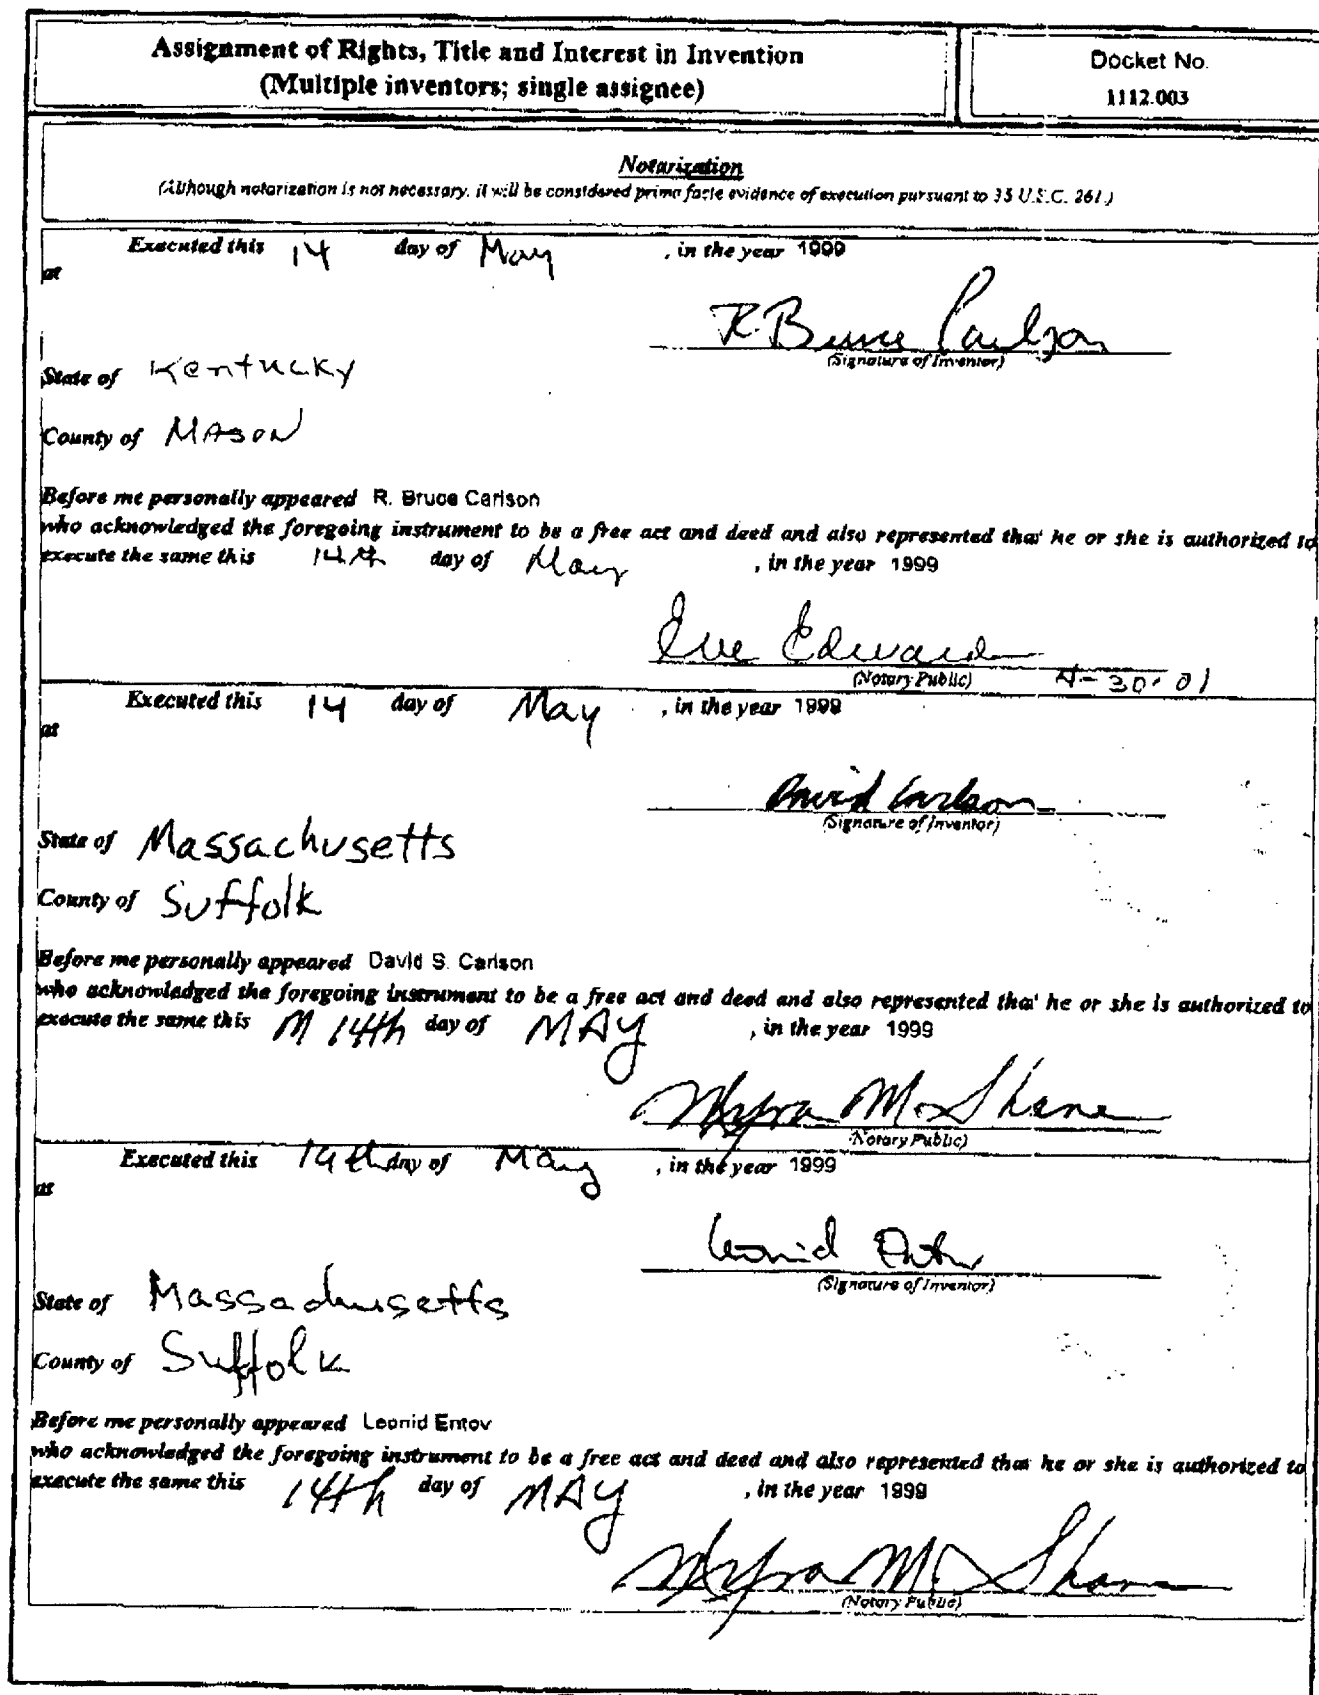 Assignment of Rights, Title and Interest in Invention
(Multiple inventors; single assignee)
Docket No.
1112.003
Notarization
(Although notarization is not necessary, it will be considered prima facie evidence of execution pursuant to 35 U.S.C. 261.)
Executed this 14 day of May , in the year 1999
at
R Bruce Carlson
(Signature of Inventor)
State of Kentucky
County of MASON
Before me personally appeared R. Bruce Carlson
who acknowledged the foregoing instrument to be a free act and deed and also represented that he or she is authorized to
execute the same this 14th day of May , in the year 1999
Eve Edwards
(Notary Public) 4-30-01
Executed this 14 day of May , in the year 1999
at
David Carlson
(Signature of Inventor)
State of Massachusetts
County of Suffolk
Before me personally appeared David S. Carlson
who acknowledged the foregoing instrument to be a free act and deed and also represented that he or she is authorized to
execute the same this M 14th day of MAY , in the year 1999
Myra M. Shane
(Notary Public)
Executed this 14th day of May , in the year 1999
at
Leonid Entov
(Signature of Inventor)
State of Massachusetts
County of Suffolk
Before me personally appeared Leonid Entov
who acknowledged the foregoing instrument to be a free act and deed and also represented that he or she is authorized to
execute the same this 14th day of MAY , in the year 1999
Myra M. Shane
(Notary Public)